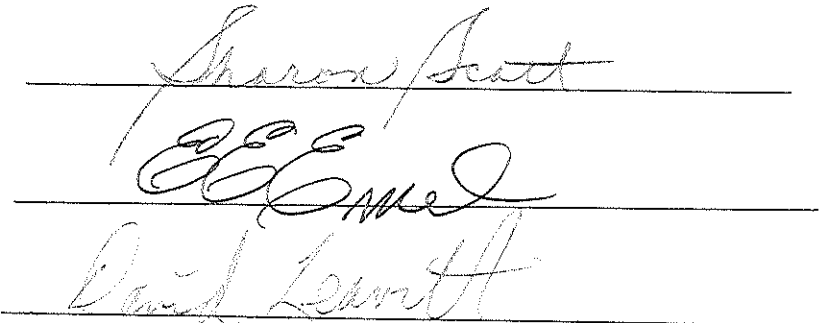 Sharon Scott
EE Emel
David Leavitt